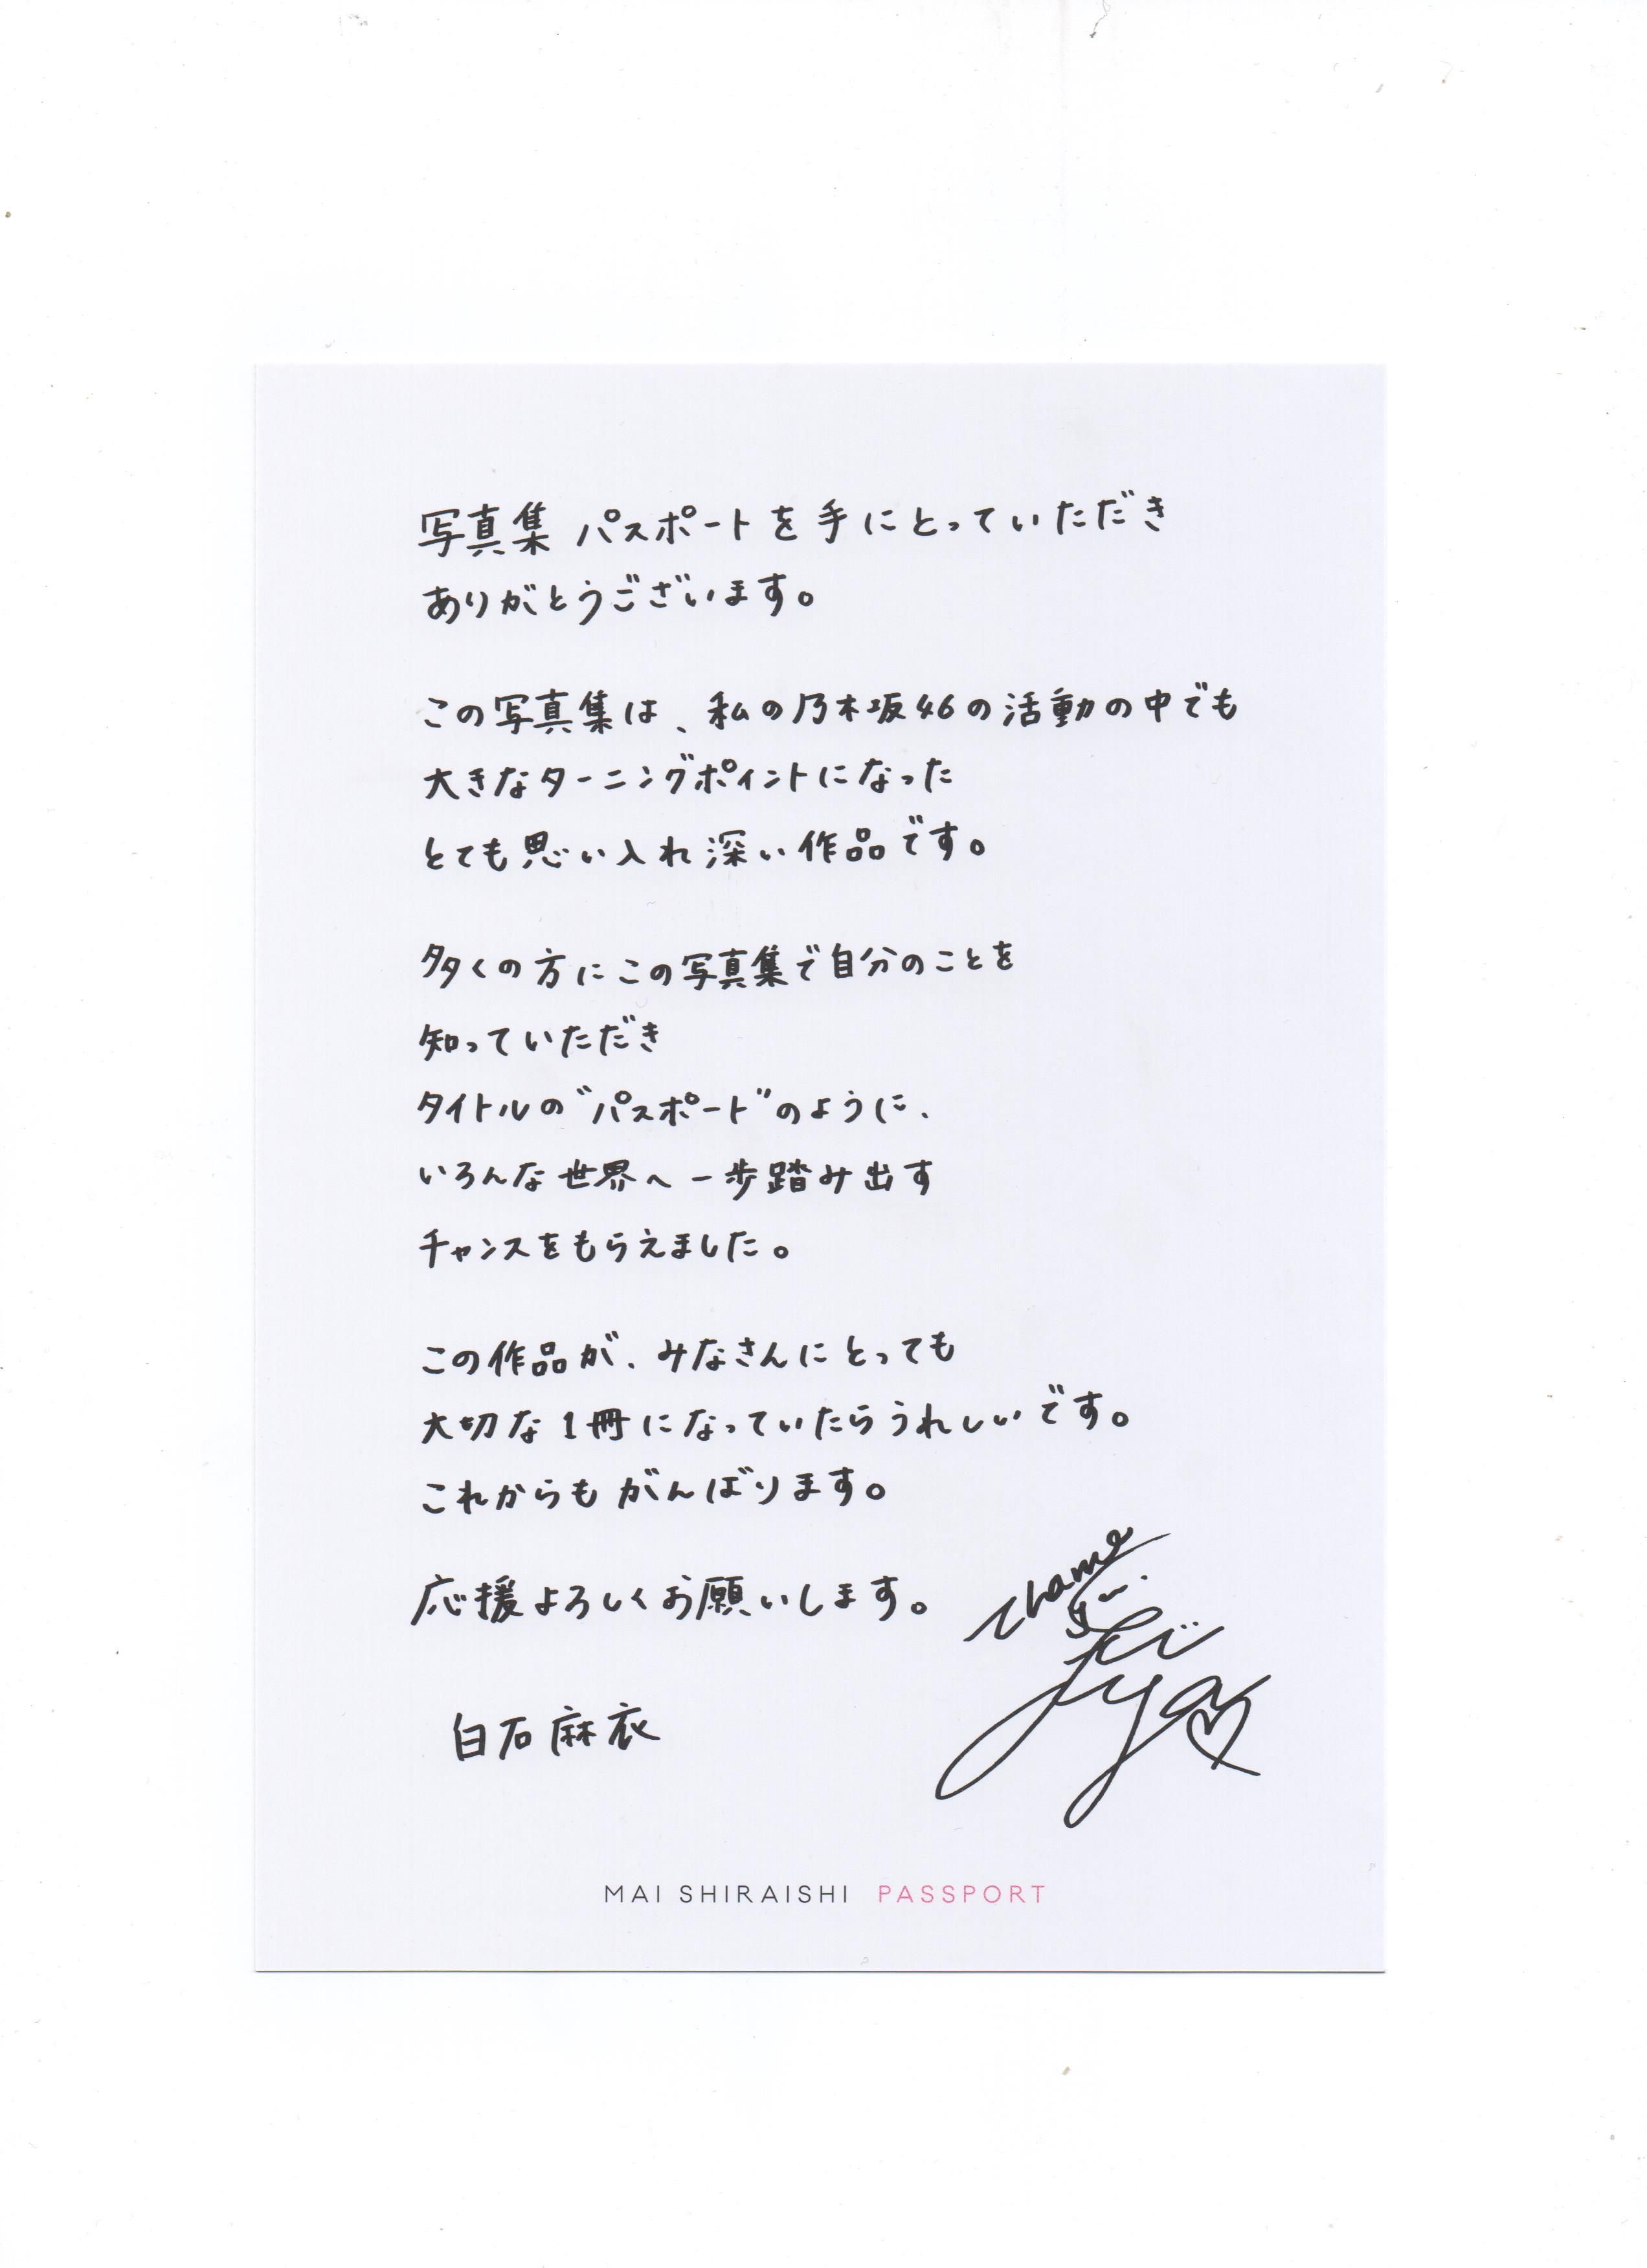 写真集 パスポートを手にとっていただき
ありがとうございます。
この写真集は、私の乃木坂46の活動の中でも
大きなターニングポイントになった
とても思い入れ深い作品です。
多くの方にこの写真集で自分のことを
知っていただき
タイトルの"パスポート"のように、
いろんな世界へ一歩踏み出す
チャンスをもらえました。
この作品が、みなさんにとっても
大切な1冊になっていたらうれしいです。
これからもがんばります。
応援よろしくお願いします。
白石麻衣
MAI SHIRAISHI PASSPORT